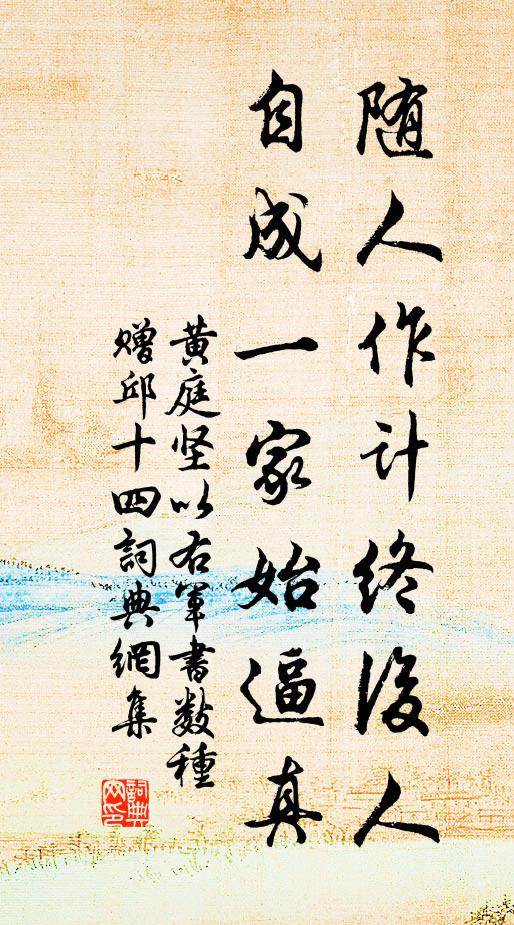 随人作计终後人
自成一家始逼真
黄庭坚以右军书数種
赠邱十四詞典網集
詞典網印